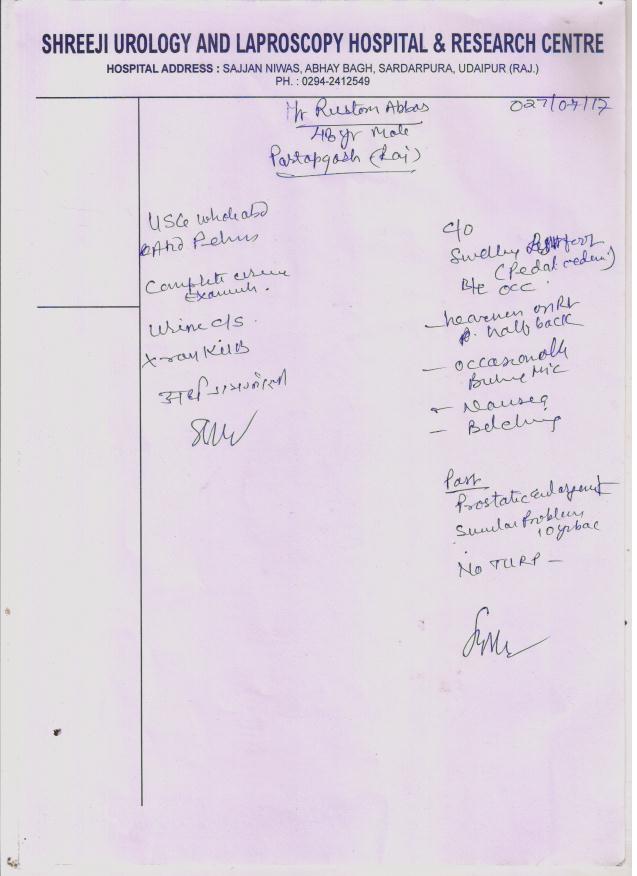 SHREEJI UROLOGY AND LAPROSCOPY HOSPITAL & RESEARCH CENTRE
HOSPITAL ADDRESS : SAJJAN NIWAS, ABHAY BAGH, SARDARPURA, UDAIPUR (RAJ.)
PH. : 0294-2412549
Mr Rustom Abbas
48 yr Male
Partapgash (Raj)
USG whole abd
And Pelvis
Complete urine
Examin.
Urine c/s.
X-ray KUB
c/o
Swelling
(Pedal oedema)
B/L occ.
— heaviness on Rt
half back
— occasionally
Burning Mic
- Nausea
— Belching
Past
Prostatic enlargement
Similar Problem
10 yr bac
No TURP —